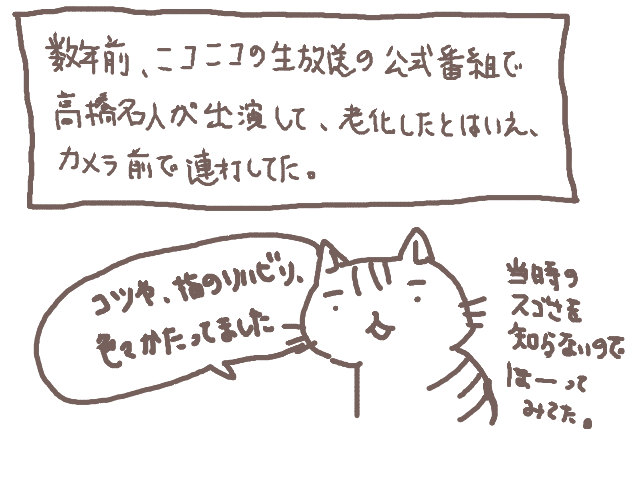 数年前、ニコニコの生放送の公式番組で
高橋名人が出演して、老化したとはいえ、
カメラ前で連打してた。
コツや、指のリハビリ、
色々かたってました
当時の
スゴさを
知らないので
ほーって
みてた。